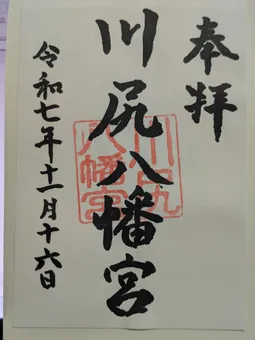 奉拝
川尻八幡宮
川尻八幡宮
令和七年十一月十六日